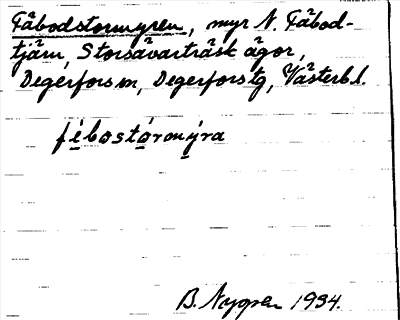 Fäbodstormyren, myr N. Fäbod-
tjärn, Storsävarträsk ägor,
Degerfors sn, Degerfors tg, Västerb. l.
fèbostórmýra
B. Nygren 1934.